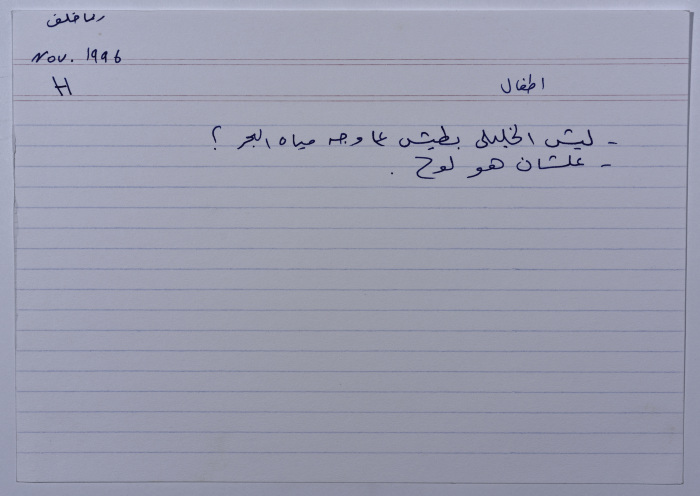 رما خلف
Nov. 1996
H
اطفال
- ليش الخليلي بطيش عا وجه مياه البحر ؟
- علشان هو لوح .